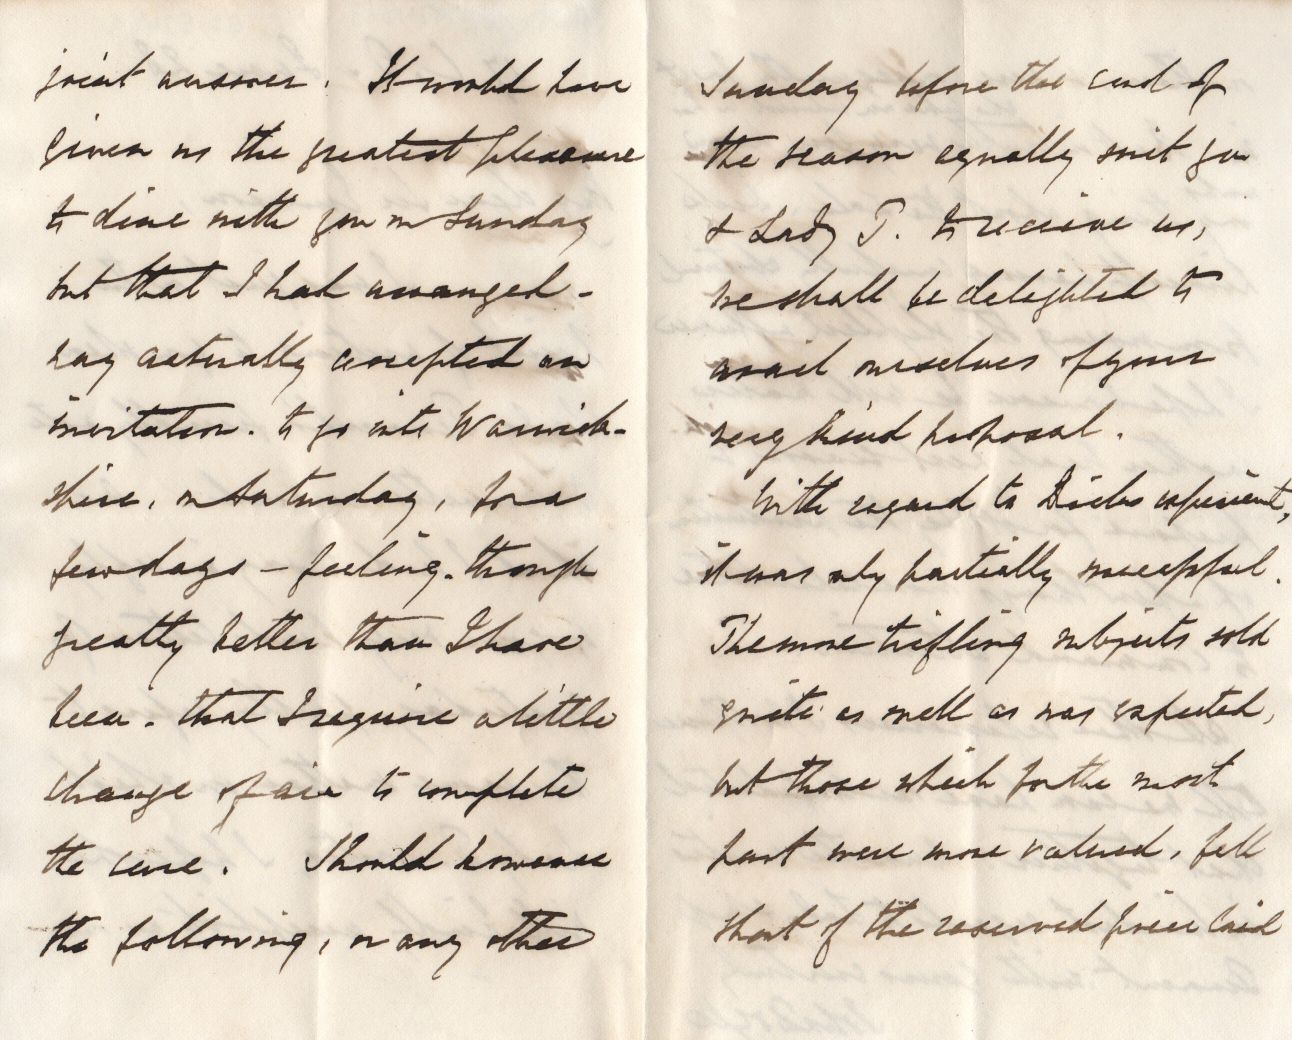 joint answer. It would have
given us the greatest pleasure
to dine with you on Sunday
but that I had arranged -
nay actually accepted an
invitation. to go into Warwick-
shire, on Saturday, for a
few days – feeling. though
greatly better than I have
been. that I require a little
change of air to complete
the cure. Should however
the following, or any other
Sunday before the end of
the season equally suit you
& Lady T. to receive us,
we shall be delighted to
avail ourselves of your
very kind proposal.
With regard to Dick's experiment,
it was only partially successful.
The more trifling subjects sold
quite as well as was expected,
but those which for the most
part were more valued, fell
short of the reserved price laid